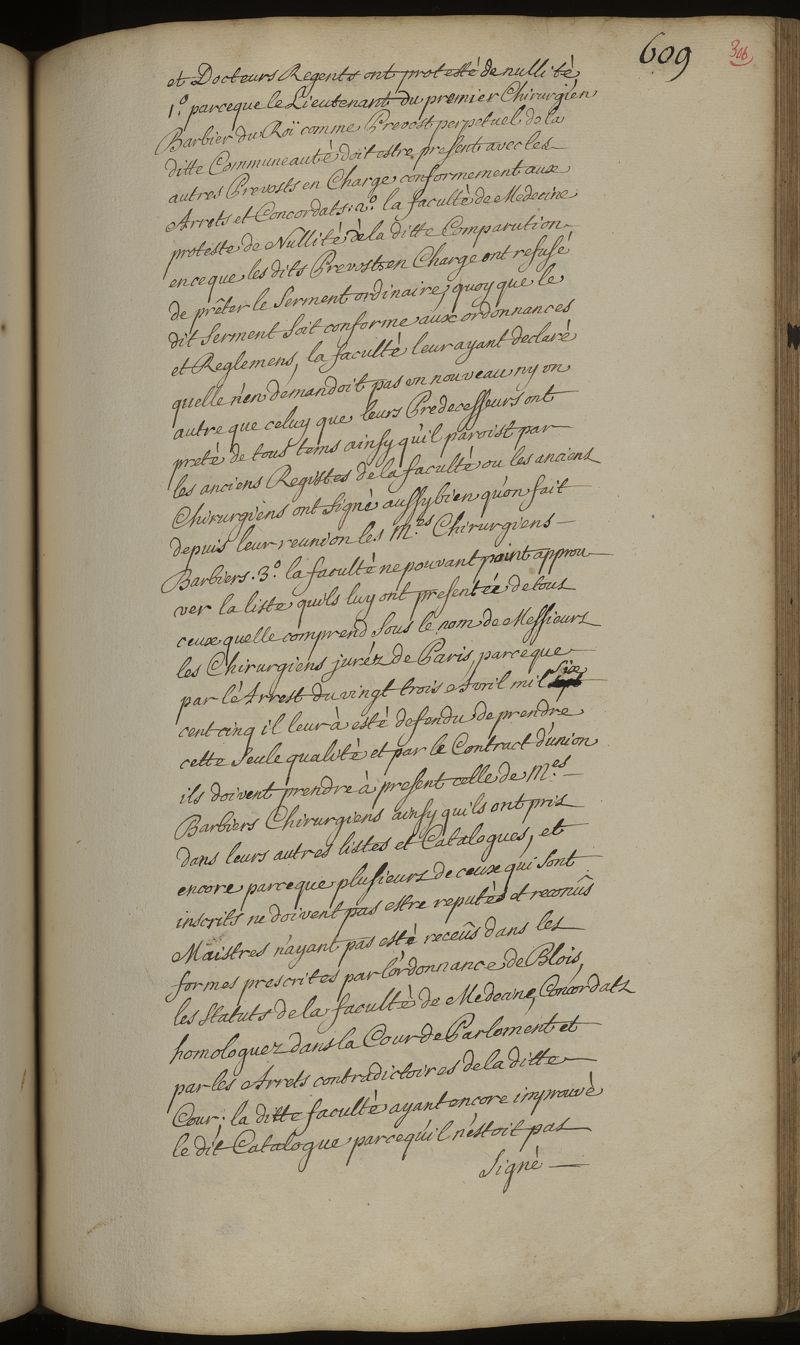 609
306
et Docteurs Regents ont protesté de nullité,
1.° parceque le Lieutenant du premier Chirurgien
Barbier du Roï comme Prevost perpetuel de la
ditte Communeauté doit estre present avec les
autres Prevosts en Charge conformement aux
Arrets et Concordats: 2.° la faculté de Medecine
proteste de Nullité de la ditte Comparution
en ce que les dits Prevosts en Charge ont refusé
de prêter le Serment ordinaire, quoy que le
dit Serment soit conforme aux ordonnances
et Reglemens, la faculté leur ayant declaré
quelle n'en demandoit pas un nouveau ny un
autre que celuy que leurs Predecesseurs ont
preté de tous tems ainsy qu'il paroist par
les anciens Registes de la faculté ou les anciens
Chirurgiens ont signé aussy bien qu'on fait
depuis leur reunion les M.es Chirurgiens
Barbiers. 3.° la faculté ne pouvant point approu
ver la liste qu'ils luy ont presentée de tous
ceux quelle comprend sous le nom de Messieurs
les Chirurgiens juréz de Paris, parceque
par l'Arrest du vingt trois Avril mil six
cent cinq il leur à esté defendu de prendre
cette seule qualité et par le Contract d'union
ils doivent prendre à present celle de M.es
Barbiers Chirurgiens ainsy qu'ils ont pris
dans leurs autres listes et Catalogues, et
encore parceque plusieurs de ceux qui sont
inscrits ne doivent pas estre reputés et reconûs
Maistres n'ayant pas esté receûs dans les
formes prescrites par l'ordonnance de Blois,
les statuts de la faculté de Medecine, Concordats
homologuez dans la Cour de Parlement et
par les Arrets contradictoires de la ditte
Cour; la ditte faculté ayant encore improuvé
le dit Catalogue parcequ'il n'estoit pas
signé